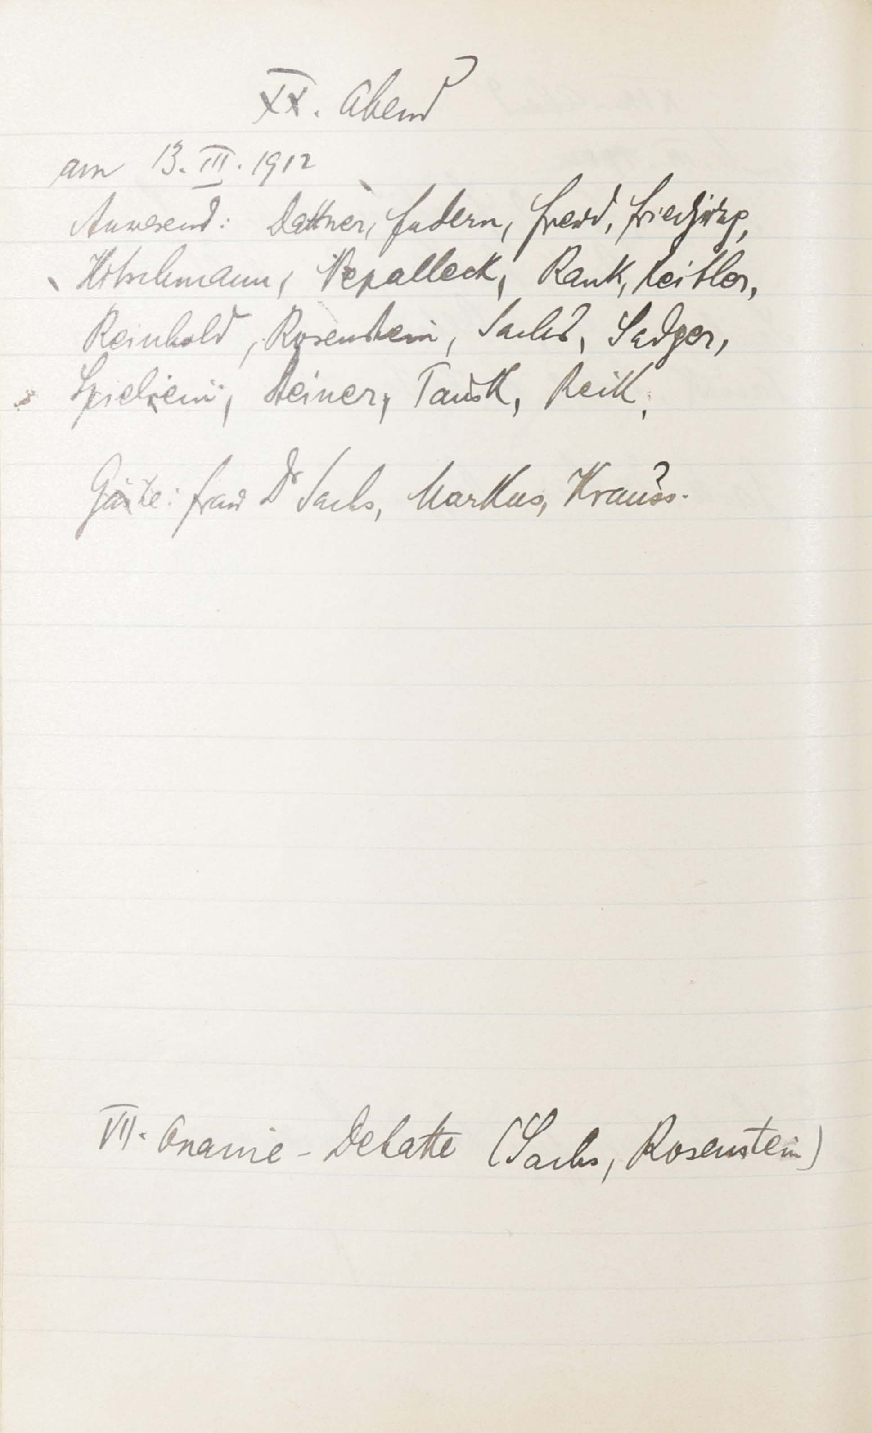 XX. Abend
am 13. III. 1912
Anwesend: Dattner, Federn, Freud, Friedjung,
Hitschmann, Nepalleck, Rank, Reitler,
Reinhold, Rosenstein, Sachs, Sadger,
Spielrein, Steiner, Tausk, Reik.
Gäste: Frau Dr Sachs, Markus, Krauss.
VII. Onanie-Debatte (Sachs, Rosenstein)